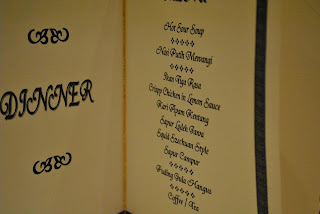 DINNER
Hot Sour Soup
Nasi Putih Mewangi
Ikan Tiga Rasa
Crispy Chicken in Lemon Sauce
Kari Ayam Kentang
Sayur Laleh Bawa
Squid Szechuan Style
Sayur Campur
Puding Gula Hangus
Coffee / Tea